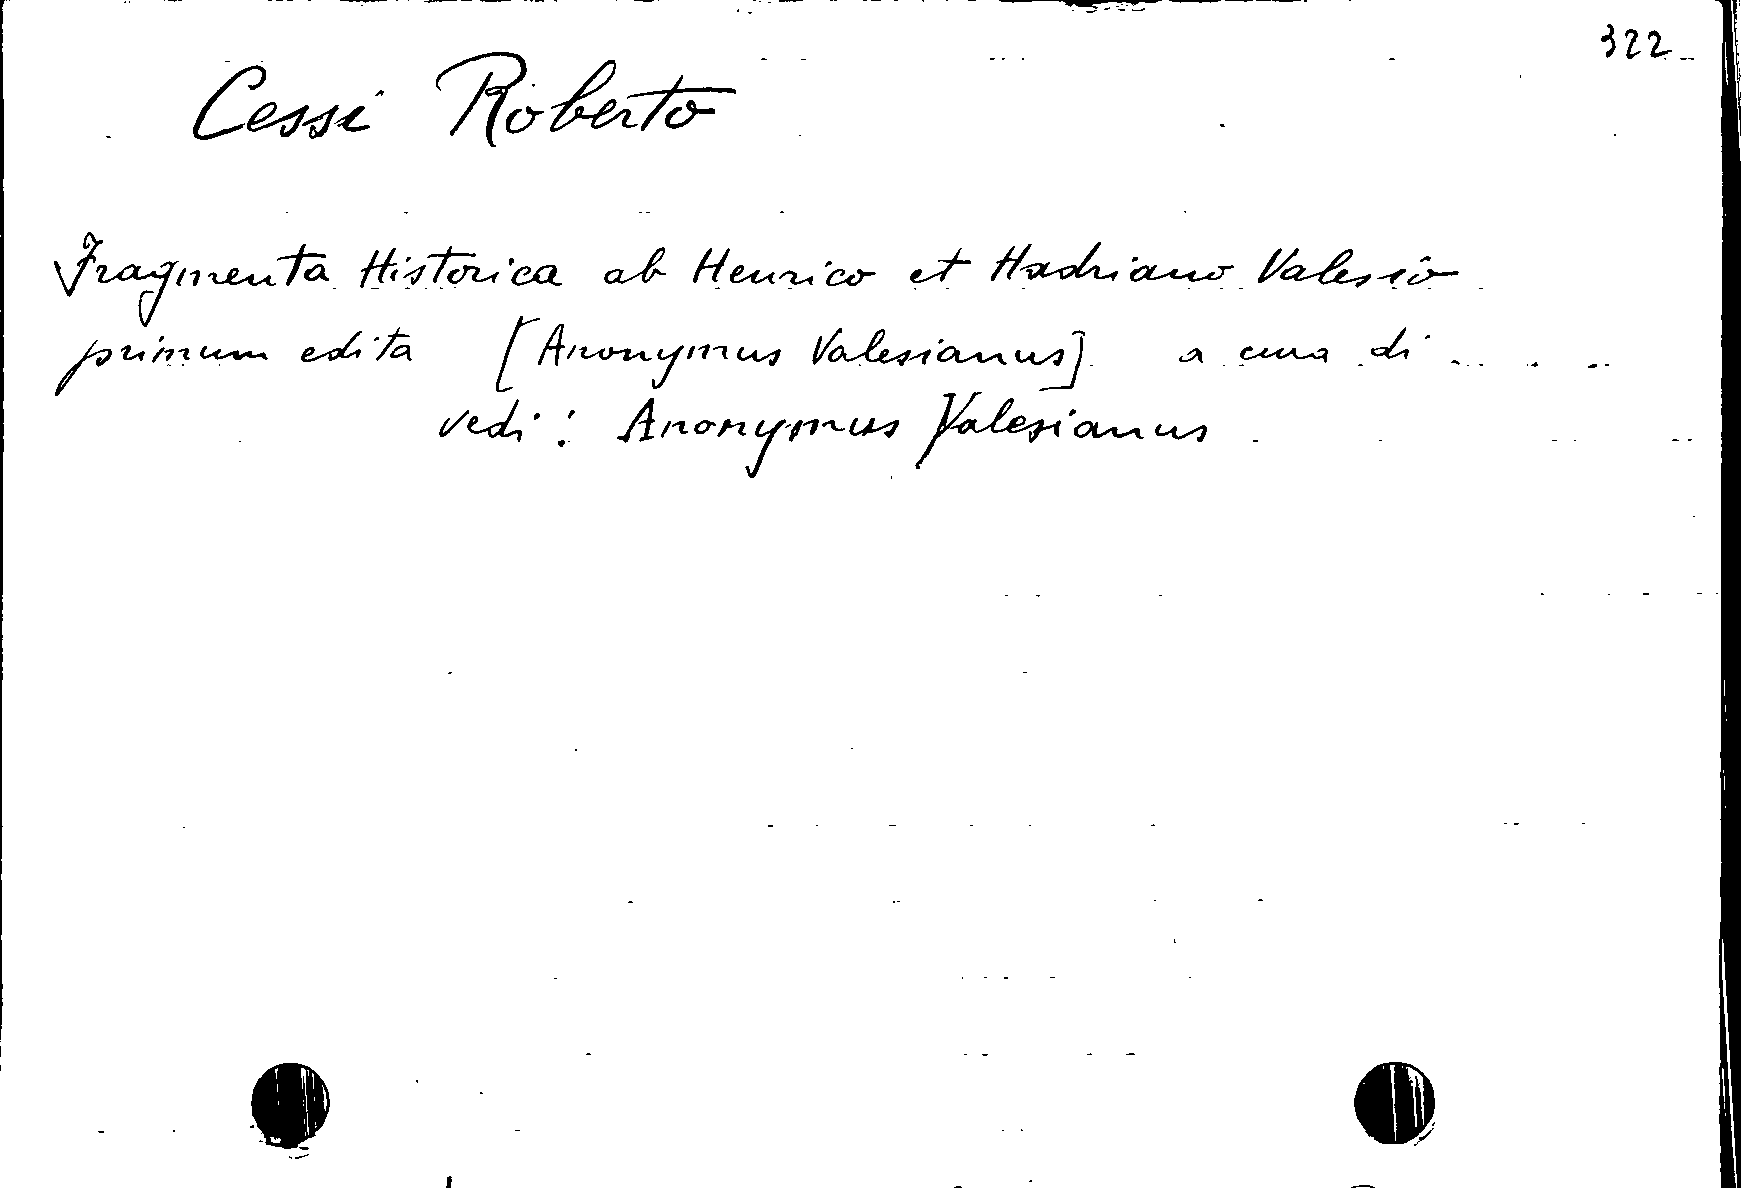 322
Cessi Roberto
Fragmenta Historica ab Henrico et Hadriano Valesio
primum edita [Anonymus Valesianus] a cura di .....
vedi: Anonymus Valesianus